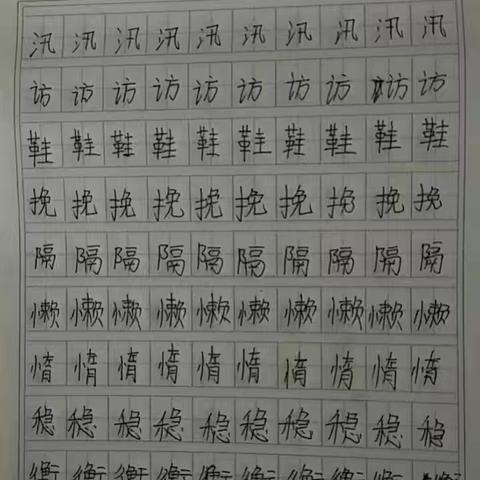 汛 汛 汛 汛 汛 汛 汛 汛 汛 汛
访 访 访 访 访 访 访 访 访 访
鞋 鞋 鞋 鞋 鞋 鞋 鞋 鞋 鞋 鞋
挽 挽 挽 挽 挽 挽 挽 挽 挽 挽
隔 隔 隔 隔 隔 隔 隔 隔 隔 隔
懒 懒 懒 懒 懒 懒 懒 懒 懒 懒
惰 惰 惰 惰 惰 惰 惰 惰 惰 惰
稳 稳 稳 稳 稳 稳 稳 稳 稳 稳
衡 衡 衡 衡 衡 衡 衡 衡 衡 衡